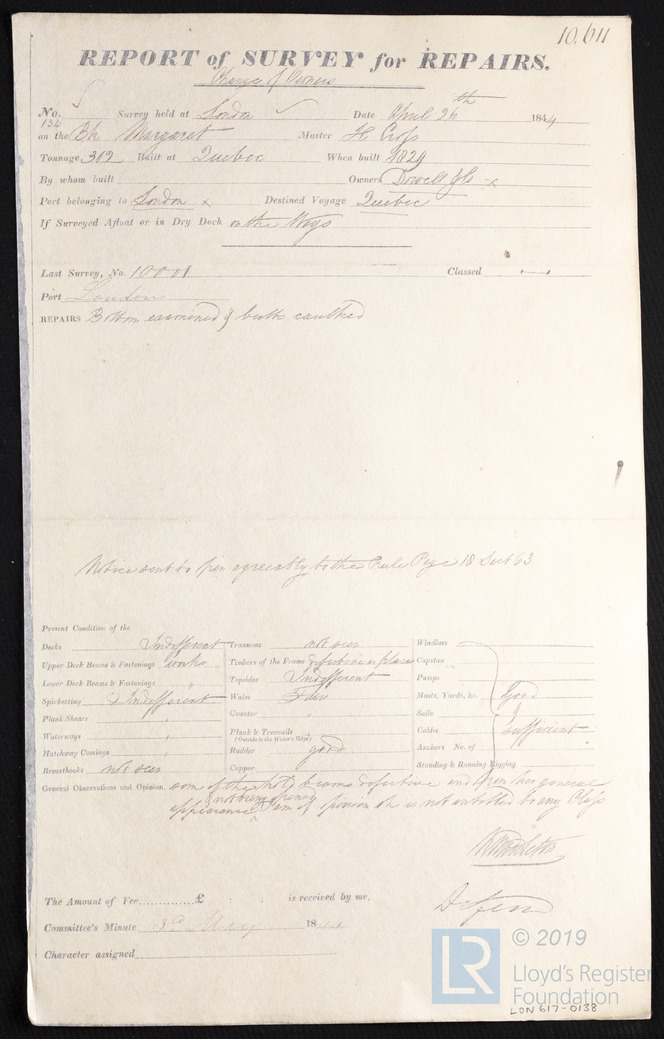 10.611
REPORT of SURVEY for REPAIRS.
Change of Owners
No. 134 Survey held at London Date April 26th 1844
on the Bk Margaret Master H Cross
Tonnage 312 Built at Quebec When built 1829
By whom built Owners Dowell & Co x
Port belonging to London x Destined Voyage Quebec
If Surveyed Afloat or in Dry Dock on the Ways
Last Survey, No. 10001 Classed
Port London
REPAIRS Bottom examined & butts caulked
Notice sent to agreeably to the Rule Page 18 Sect 63
Present Condition of the
Decks Indifferent Transoms not seen Windlass
Upper Deck Beams & Fastenings works Timbers of the Frame defective in places Capstan
Lower Deck Beams & Fastenings " Topsides Indifferent Pumps
Spirketting Indifferent Wales Fair Masts, Yards, &c. Good
Plank Shears " Counter " Sails
Waterways " Plank & Treenails (Outside to the Water's Edge) Cables sufficient
Hatchway Comings Rudder good Anchors No. of
Breasthooks not seen Copper Standing & Running Rigging
General Observations and Opinion, some of the beams defective and from her general
appearance I am of opinion she is not entitled to any Class
not being
The Amount of Fee............£ : : is received by me,
Committee's Minute 3rd May 1844
Character assigned
LR © 2019
Lloyd's Register
Foundation
LDN 617-0138